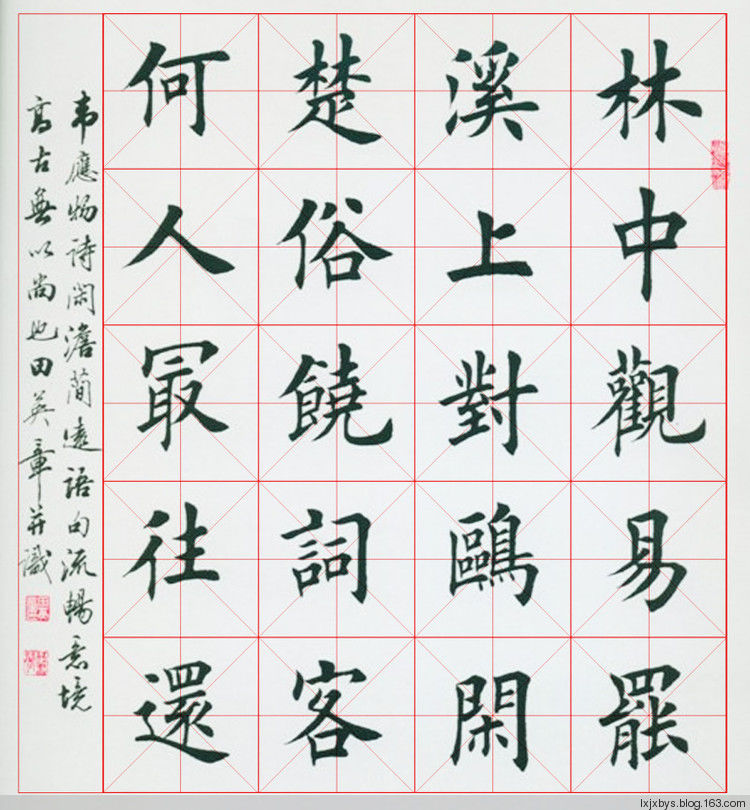 林中觀易罷
溪上對鷗閑
楚俗饒詞客
何人最往還
韦應物诗閑澹簡遠語句流暢意境
高古無以尚也田英章并識
lxjxbys.blog.163.com